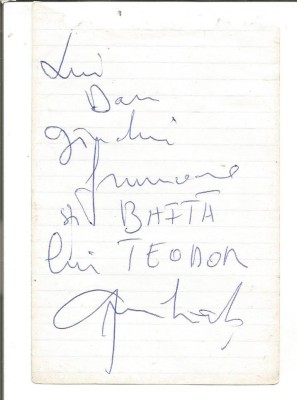 Lui
Dan
gânduri
frumoase
și BAFTĂ
lui TEODOR